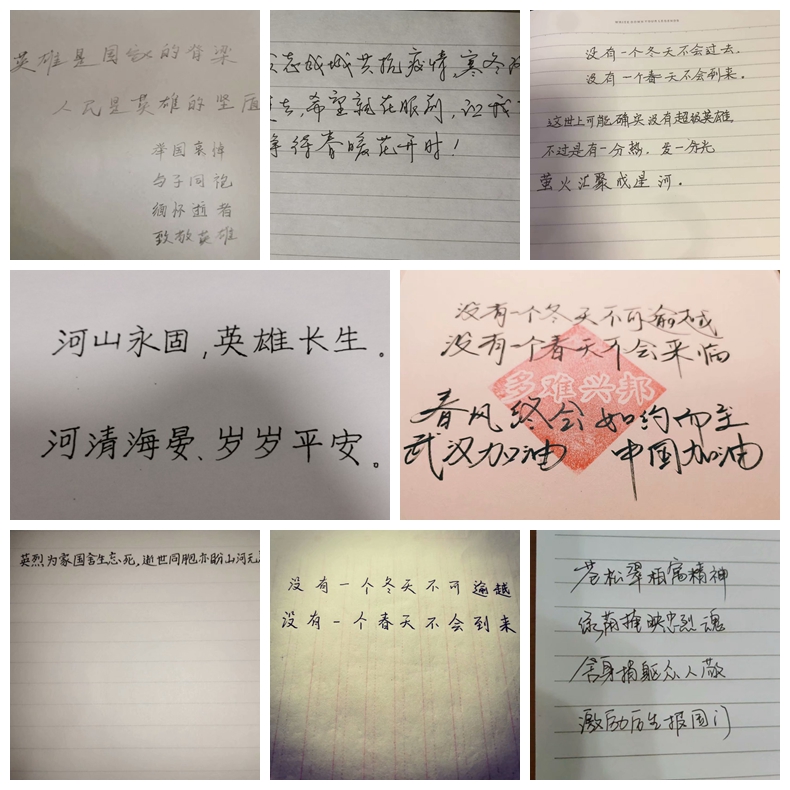 英雄是国家的脊梁
人民是英雄的坚盾
举国哀悼
与子同袍
缅怀逝者
致敬英雄
众志成城共抗疫情,寒冬
过去,希望就在眼前,让我
等待春暖花开时!
没有一个冬天不会过去。
没有一个春天不会到来。
这世上可能确实没有超级英雄,
不过是有一分热,发一分光
萤火汇聚成星河。
河山永固,英雄长生。
河清海晏、岁岁平安。
没有一个冬天不可逾越
没有一个春天不会来临
多难兴邦
春风终会如约而至
武汉加油 中国加油
英烈为家国舍生忘死,逝世同胞亦盼山河无
没有一个冬天不可逾越
没有一个春天不会到来
苍松翠柏寓精神
绿荫掩映忠烈魂
舍身捐躯众人敬
激励后生报国门